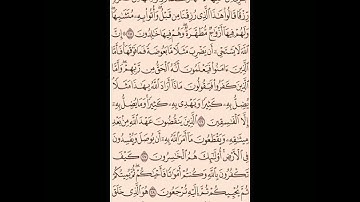 رِّزْقًا قَالُوا۟ هَٰذَا ٱلَّذِى رُزِقْنَا مِن قَبْلُ وَأُتُوا۟ بِهِۦ مُتَشَٰبِهًا
وَلَهُمْ فِيهَآ أَزْوَٰجٌ مُّطَهَّرَةٌ وَهُمْ فِيهَا خَٰلِدُونَ ۝٢٥ إِنَّ
ٱللَّهَ لَا يَسْتَحْىِۦٓ أَن يَضْرِبَ مَثَلًا مَّا بَعُوضَةً فَمَا فَوْقَهَا فَأَمَّا
ٱلَّذِينَ ءَامَنُوا۟ فَيَعْلَمُونَ أَنَّهُ ٱلْحَقُّ مِن رَّبِّهِمْ وَأَمَّا
ٱلَّذِينَ كَفَرُوا۟ فَيَقُولُونَ مَاذَآ أَرَادَ ٱللَّهُ بِهَٰذَا مَثَلًا
يُضِلُّ بِهِۦ كَثِيرًا وَيَهْدِى بِهِۦ كَثِيرًا وَمَا يُضِلُّ بِهِۦٓ
إِلَّا ٱلْفَٰسِقِينَ ۝٢٦ ٱلَّذِينَ يَنقُضُونَ عَهْدَ ٱللَّهِ مِنۢ بَعْدِ
مِيثَٰقِهِۦ وَيَقْطَعُونَ مَآ أَمَرَ ٱللَّهُ بِهِۦٓ أَن يُوصَلَ وَيُفْسِدُونَ
فِى ٱلْأَرْضِ أُو۟لَٰٓئِكَ هُمُ ٱلْخَٰسِرُونَ ۝٢٧ كَيْفَ
تَكْفُرُونَ بِٱللَّهِ وَكُنتُمْ أَمْوَٰتًا فَأَحْيَٰكُمْ ثُمَّ يُمِيتُكُمْ
ثُمَّ يُحْيِيكُمْ ثُمَّ إِلَيْهِ تُرْجَعُونَ ۝٢٨ هُوَ ٱلَّذِى خَلَقَ